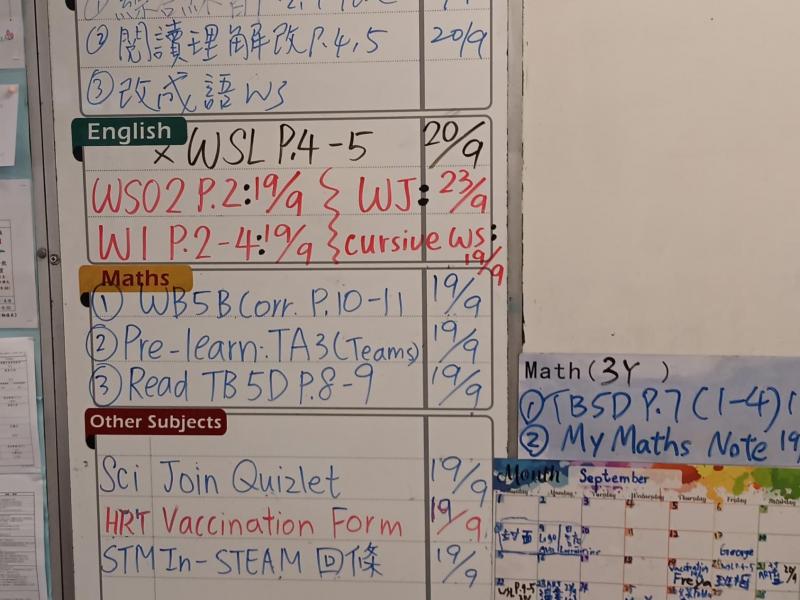 ② 閱讀理解改P.4,5 20/9
③ 改成語WS
English
× WSL P.4-5 20/9
WS02 P.2:19/9 { WJ: 23/9
W1 P.2-4:19/9 { cursive WS: 19/9
Maths
① WB5B Corr. P.10-11 19/9
② Pre-learn: TA3 (Teams) 19/9
③ Read TB 5D P.8-9 19/9
Other Subjects
Sci Join Quizlet 19/9
HRT Vaccination Form 19/9
STM In-STEAM 回條 19/9
Math (3Y )
① TB5D P.7 (1-4)
② My Maths Note 19
Month September
Monday Tuesday Wednesday Thursday Friday
George
Freya